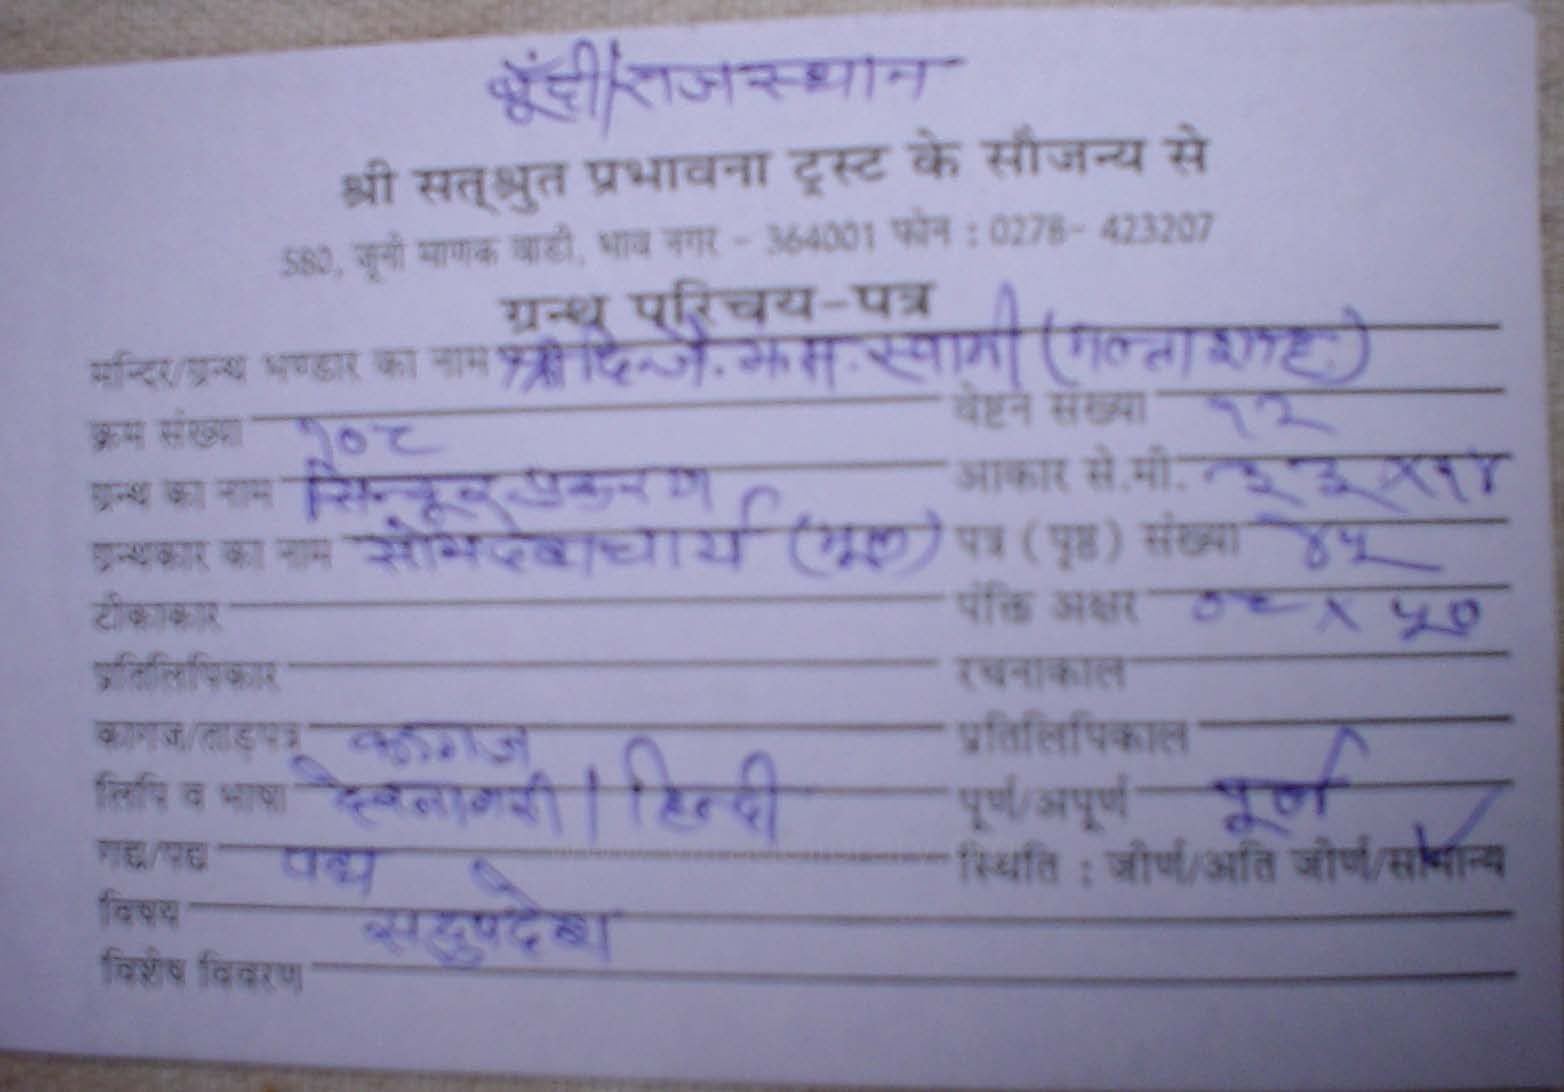 बूंदी/राजस्थान
श्री सत्श्रुत प्रभावना ट्रस्ट के सौजन्य से
580, जूनी माणक वाडी, भाव नगर - 364001 फोन : 0278- 423207
ग्रन्थ परिचय-पत्र
मन्दिर/ग्रन्थ भण्डार का नाम श्री दि. जै. स्वामी
क्रम संख्या १०८ वेष्टन संख्या १२
ग्रन्थ का नाम सिन्दूर प्रकरण आकार से.मी. ३३×१४
ग्रन्थकार का नाम सोमदेवाचार्य (मूल) पत्र (पृष्ठ) संख्या ४५
टीकाकार पंक्ति अक्षर ०८ × ५७
प्रतिलिपिकार रचनाकाल
कागज/ताड़पत्र कागज प्रतिलिपिकाल
लिपि व भाषा देवनागरी / हिन्दी पूर्ण/अपूर्ण पूर्ण
गद्य/पद्य पद्य स्थिति : जीर्ण/अति जीर्ण/सामान्य
विषय सदुपदेश
विशेष विवरण